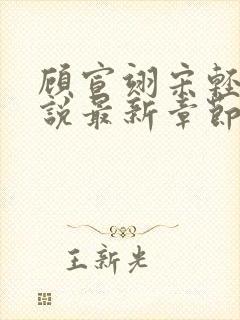 顾宣翊宋轻
说最新章节
王新光